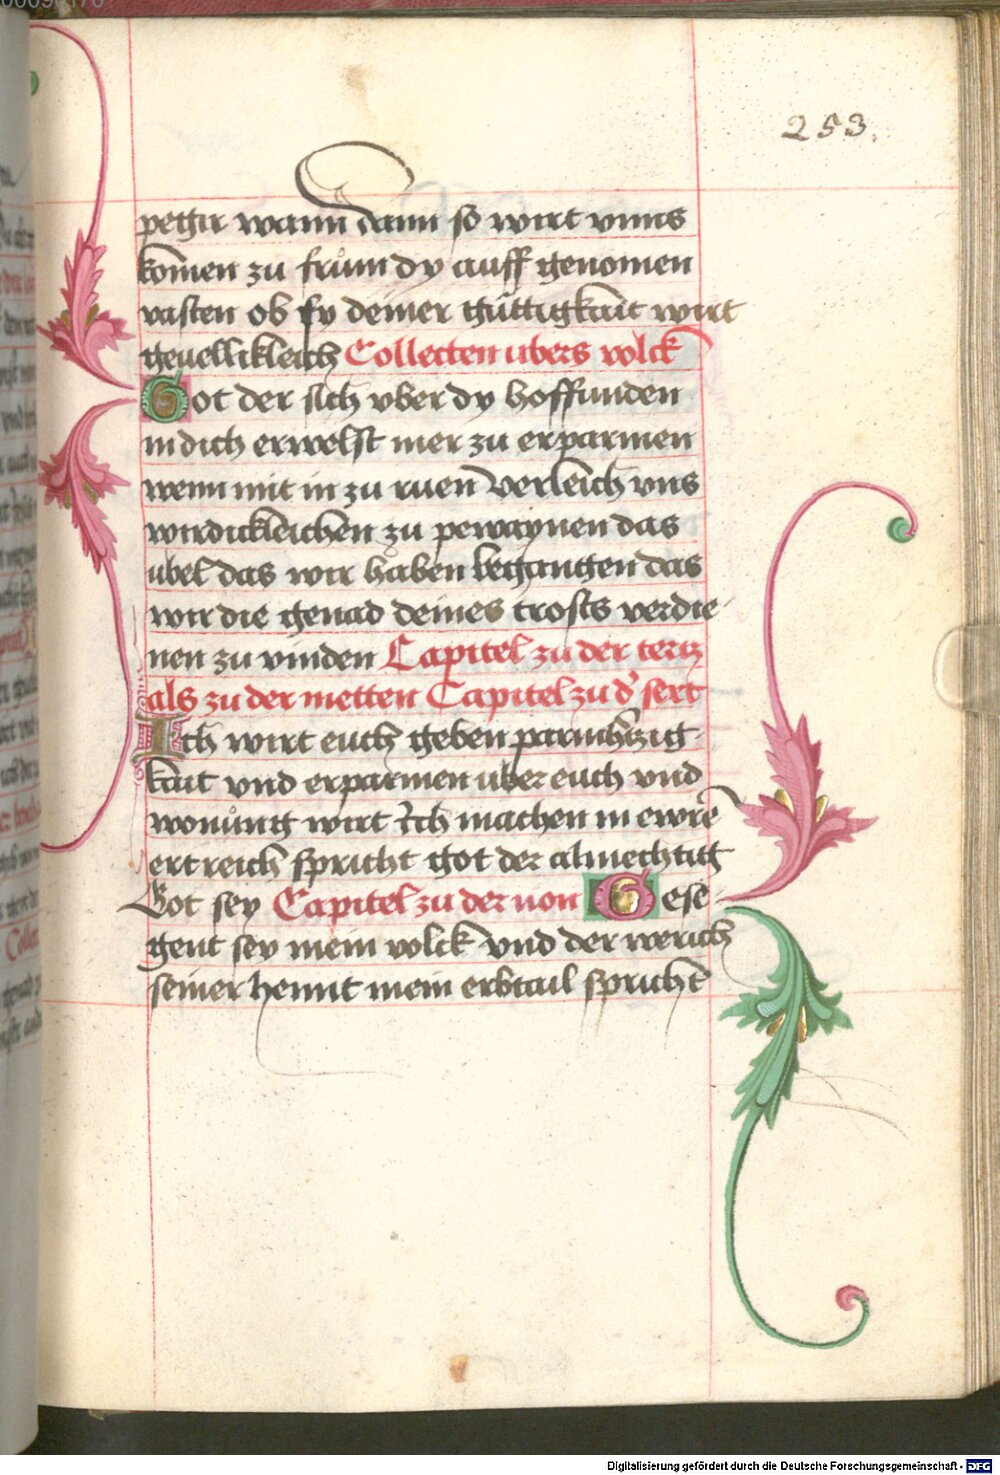 253.
pegir wann dann so wirt vnns
komen zu frům dy auff genomen
vasten ob sy deiner gůttigkait wirt
geuellikleich Collecten ubers volck
Got der sich vber dy hoffunden
in dich erwelst mer zu erparmen
wenn mit in zu zuen verleich vns
wirdickleichen zu pewaynen das
ubel das wir haben begangen das
wir die genad deines trosts verdie
nen zu vinden Capitel zu der tertz
als zu der metten Capitel zu d' sext
Ich wirt euch geben parmhertzig
kait vnd erparmen uber euch vnd
wonůng wirt Ich machen in ewrē
ertreich spricht got der almechtig
Got sey Capitel zu der non Gese
gent sey mein volck vnd der werich
seiner hennt mein erbtail spricht
Digitalisierung gefördert durch die Deutsche Forschungsgemeinschaft - DFG